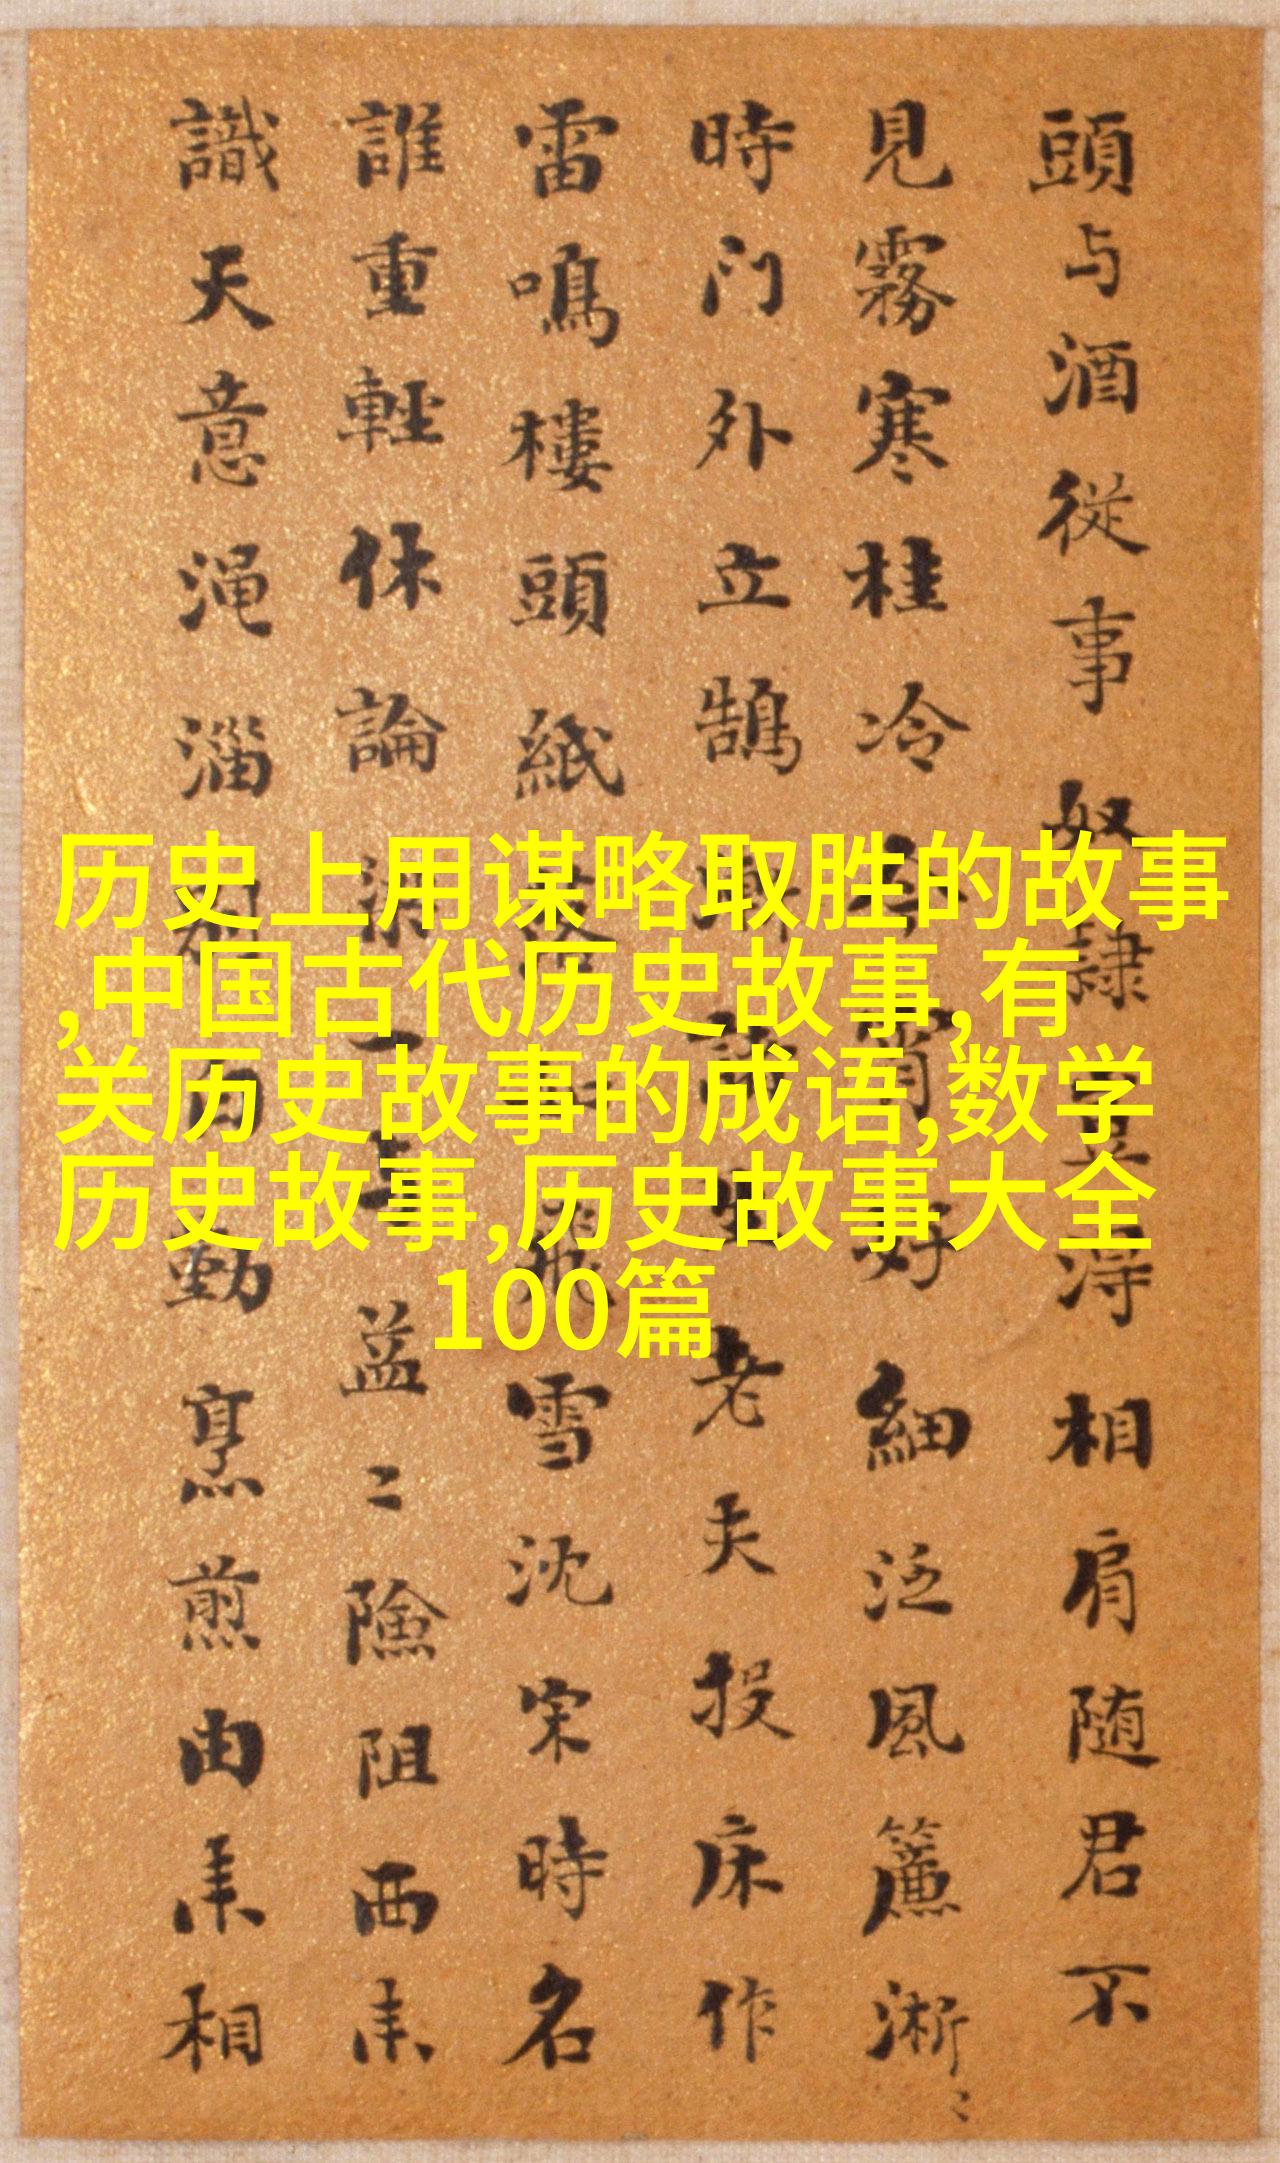 頭与酒從事奴隸
得相肩随君不
見霧寒桂冷
好細泛風簾淅〻
時门外立鵠
老夫投床作
雷鳴樓頭紙
飛雪沈宋時名
誰重輕休論
益〻險阻西来
識天意渑淄
烹煎由来相
历史上用谋略取胜的故事
,中国古代历史故事,有
关历史故事的成语,数学
历史故事,历史故事大全
100篇